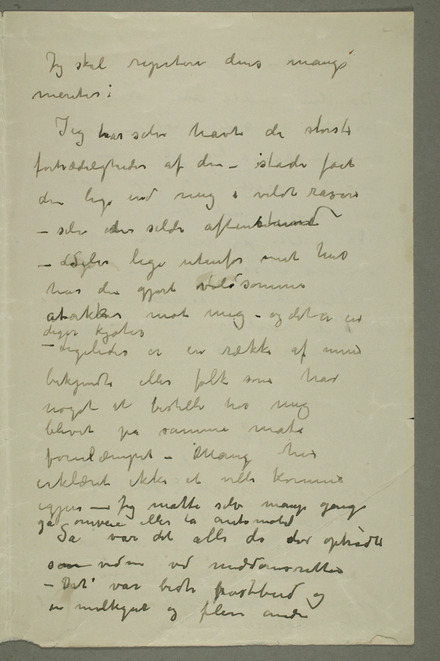 Jeg skal repetere dens mange
meriter:
Jeg har selv havt de største
fortrædeligheder af den – istade fået
den lige ved mig i vildt raseri
– selv den sidste aftenstund
– Selv lige utenfor mit hus
har den gjort voldsomme
atakker mot mig – og det er en
diger kjøter
– Ligeledes er en række af mine
bekjendte eller folk som har
noget at bestille hos mig
blevet på samme måte
forulæmpet – Mange har
erklæret ikke at ville komme
igjen – Jeg måtte selv mange gange
gå omveie eller ta automobil
Så var det alle de der optrådte
som vidner ved meddomsretten
– Det var både postbud og
en melkegut og flere andre